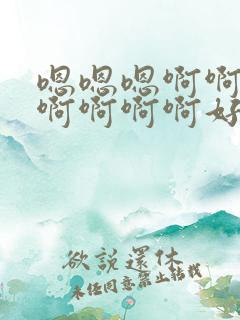 嗯嗯嗯啊啊
啊啊啊啊好
欲説還休
未经同意禁止转载